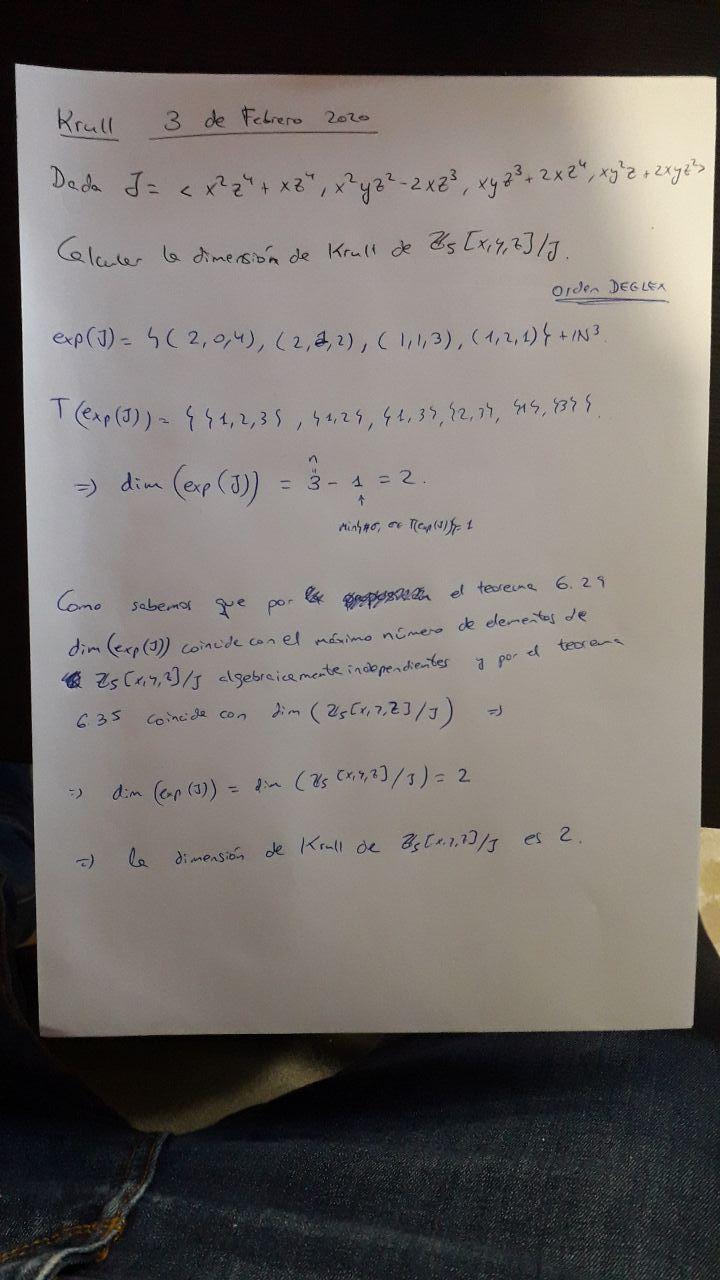 Krull 3 de Febrero 2020
Dada J = < x²z⁴ + xz⁴, x²yz² - 2xz³, xyz³ + 2xz⁴, xy²z + 2xyz²>
Calcular la dimensión de Krull de ℤ₅[x,y,z]/J.
Orden DEGLEX
exp(J) = {(2,0,4), (2,1,2), (1,1,3), (1,2,1)} + ℕ³.
T(exp(J)) = {{1,2,3}, {1,2}, {1,3}, {2,3}, {1}, {3}}.
n
=) dim (exp(J)) = 3 - 1 = 2.
min{#σ, σ∈ T(exp(J))} = 1
Como sabemos que por el teorema 6.29
dim (exp(J)) coincide con el máximo número de elementos de
ℤ₅[x,y,z]/J algebraicamente independientes y por el teorema
6.35 coincide con dim (ℤ₅[x,y,z]/J) =)
=) dim (exp(J)) = dim (ℤ₅[x,y,z]/J) = 2
=) la dimensión de Krull de ℤ₅[x,y,z]/J es 2.